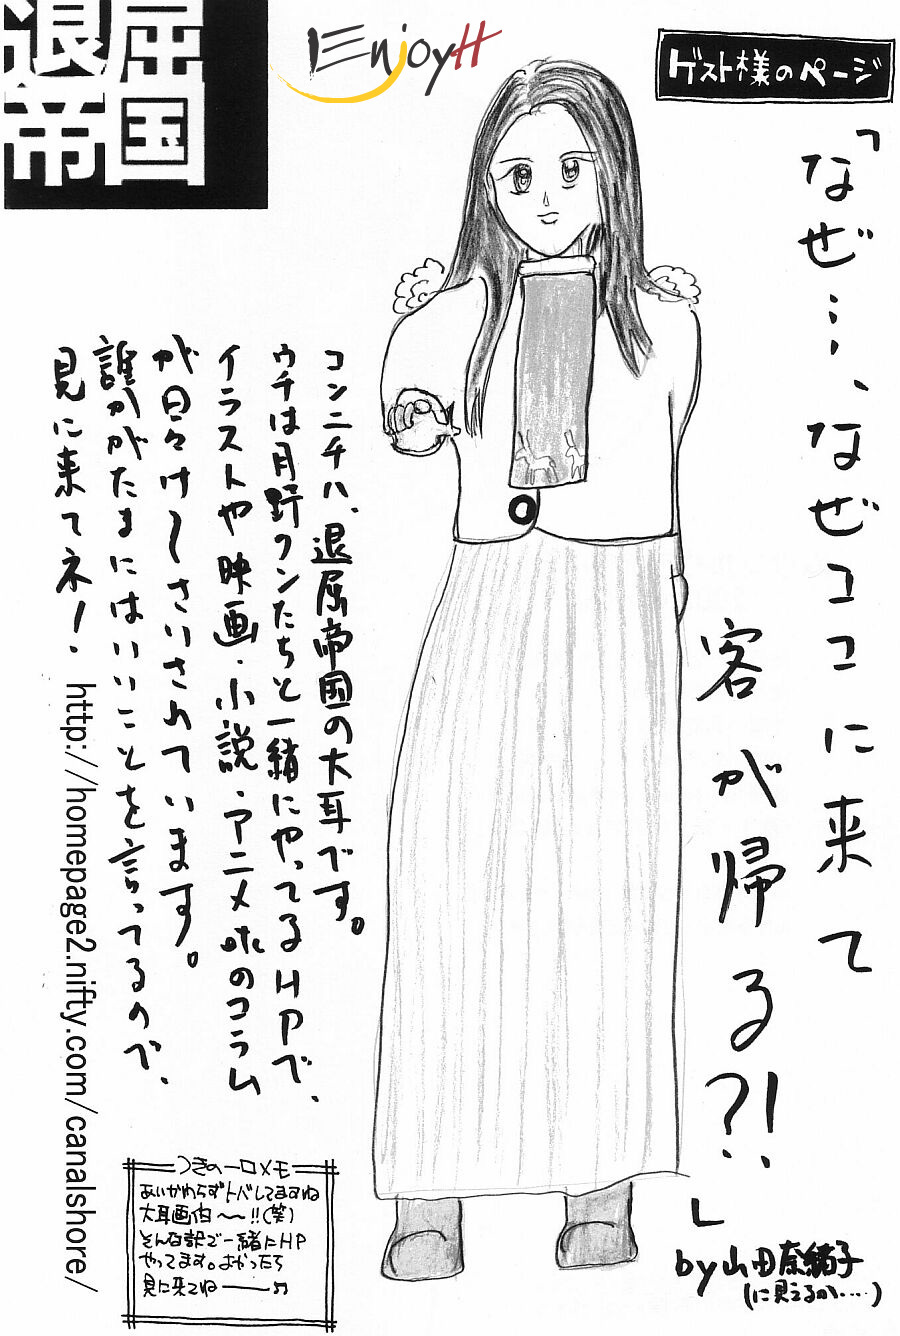 退屈
帝国
EnjoyH
ゲスト様のページ
「なぜ…、なぜココに来て
客が帰る?!」
by山田奈緒子
(に見えるか・・・・)
コンニチハ、退屈帝国の大耳です。
ウチは月野クンたちと一緒にやってるHPで、
イラストや映画・小説・アニメetcのコラム
が日々け〜さいされています。
誰かがたまにはいいことを言ってるので、
見に来てネ！
http://homepage2.nifty.com/canalshore/
つきの一口メモ
あいかわらずトバしてますね
大耳画伯〜〜!!(笑)
そんな訳で一緒にHP
やってます。よかったら
見に来てね――♫